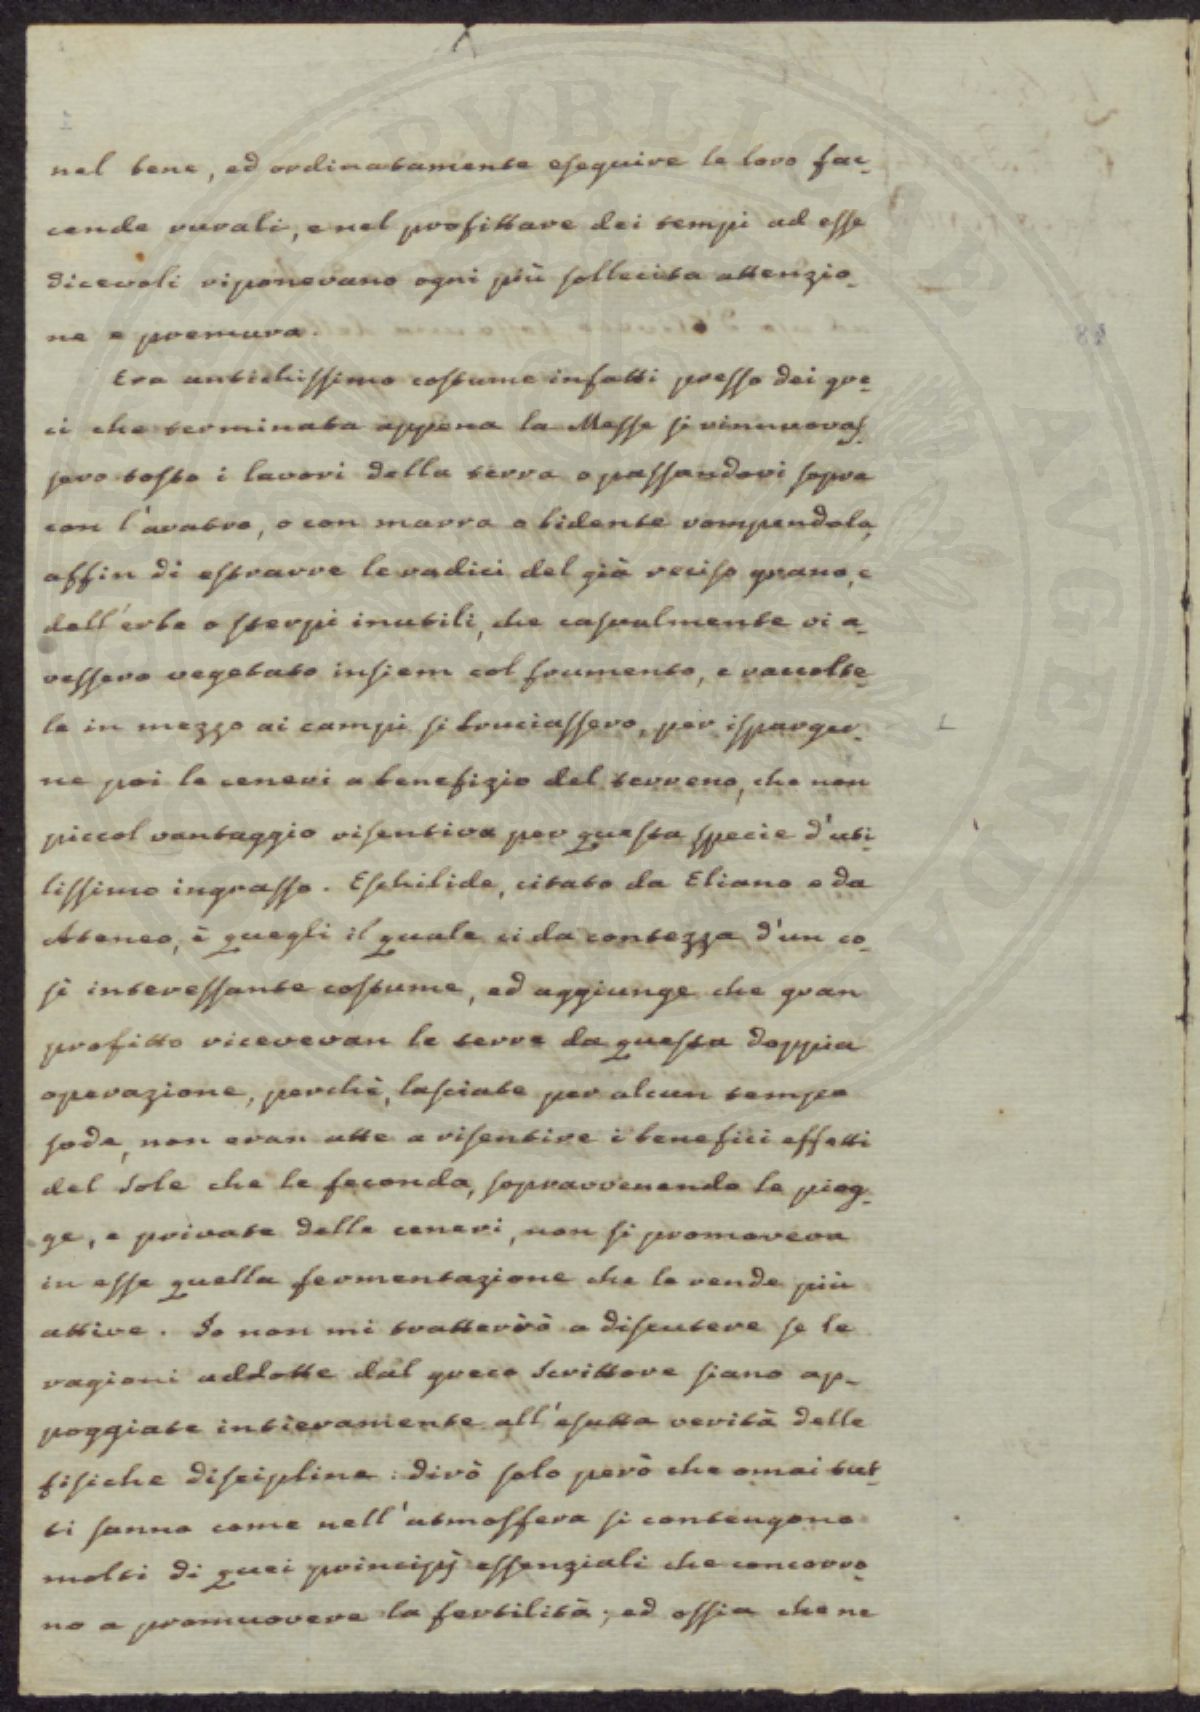 nel bene, ed ordinatamente eseguire le loro fac-
cende rurali, e nel profittare dei tempi ad esse
dicevoli riponevano ogni più sollecita attenzio-
ne e premura.
Era antichissimo costume infatti presso dei gre-
ci che terminata appena la Messe si rinnuovas-
sero tosto i lavori della terra o passandovi sopra
con l'aratro, o con marra o bidente rompendola,
affin di estrarre le radici del già reciso grano, e
dell'erbe o sterpi inutili, che casualmente vi a-
vessero vegetato insiem col frumento, e raccolte-
le in mezzo ai campi si bruciassero, per isparger-
ne poi le ceneri a benefizio del terreno, che non
piccol vantaggio risentiva per questa specie d'uti-
lissimo ingrasso. Eschilide, citato da Eliano e da
Ateneo, è quegli il quale ci da contezza d'un co-
sì interessante costume, ed aggiunge che gran
profitto ricevevan le terre da questa doppia
operazione, perchè, lasciate per alcun tempo
sode, non eran atte a risentire i benefici effetti
del Sole che le feconda, sopravvenendo le piog-
ge, e private delle ceneri, non si promoveva
in esse quella fermentazione che le rende più
attive. Io non mi tratterrò a discutere se le
ragioni addotte dal greco Scrittore siano ap-
poggiate intieramente all'esatta verità delle
fisiche discipline: dirò solo però che omai tut-
ti sanno come nell'atmosfera si contengono
molti di quei principj essenziali che concorro-
no a promuovere la fertilità; ed ossia che ne
PVBLICAE
AVGENDA